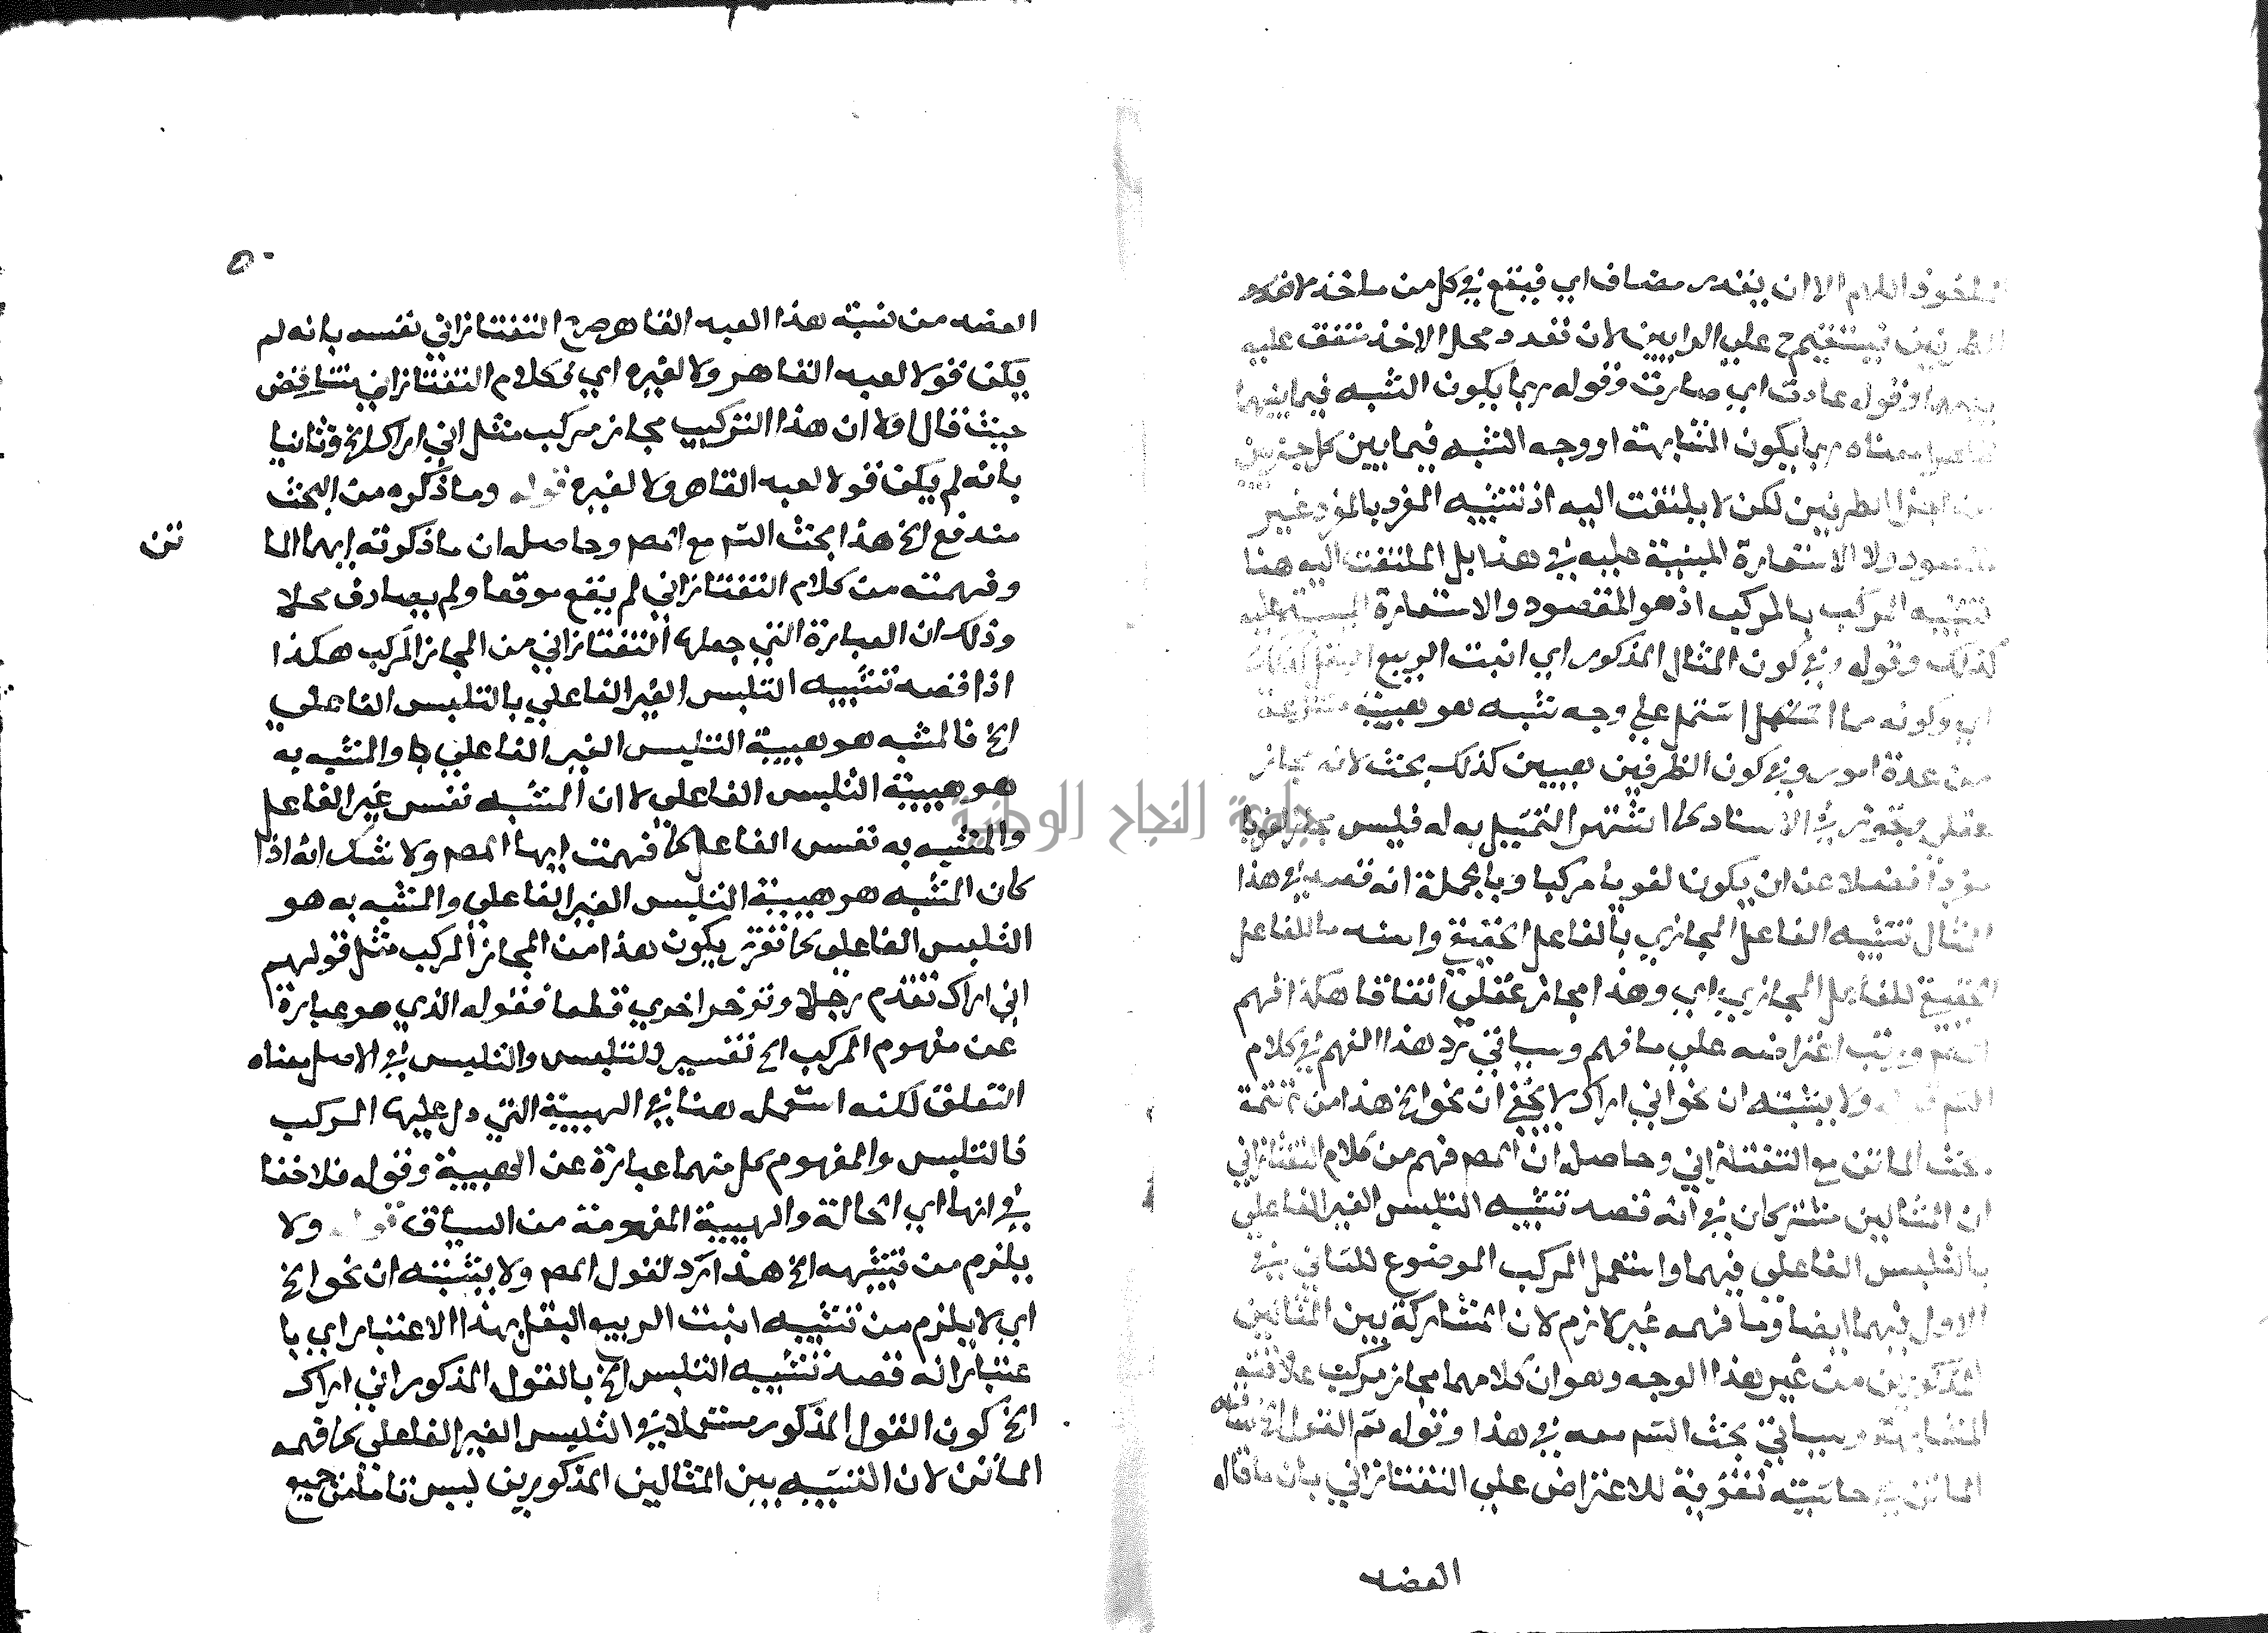 اللام الا ان يقدر مضاف اي فيقع في كل من ماخذ
علي الرايين لان تعدد محل الاخذ متفق عليه
قوله عادت اي صارت وقوله ربما يكون الشبه فيما بينهما
معناه ربما يكون المشابهة او وجه الشبه فيما بين كل جزئين
الطرفين لكن لا يلتفت اليه اذ تشبيه المفرد بالمفرد غير
ولا الاستعارة المبنية عليه في هذا بل الملتفت اليه هنا
تشبيه المركب بالمركب اذ هو المقصود والاستعارة المبنية عليه
كذلك وقوله وفي كون المثال المذكور اي انبت الربيع البقل كذلك
اي وكونه مما اشتمل علي وجه شبه هو هيئة منتزعة
من عدة امور وفي كون الطرفين هيئتين كذلك بحث لانه مجاز
عقلي وتجوز في الاسناد كما اشتهر التمثيل به له فليس مجازا لغويا
مفردا فضلا عن ان يكون لغويا مركبا وبالجملة انه قصد في هذا
المثال تشبيه الفاعل المجازي بالفاعل الحقيقي واسند ما للفاعل
الحقيقي للفاعل المجازي اي وهذا مجاز عقلي اتفاقا هكذا فهم
المص ورتب اعتراضه علي ما فهم وسياتي رد هذا الفهم في كلام
ولا يشبه ان نحو اني اراك لا يخفي ان نحو الخ هذا من تتمة
بحث الماتن مع التفتازاني وحاصله ان المص فهم من كلام التفتازاني
ان المثالين مشتركان في انه قصد تشبيه التلبس الغير الفاعلي
بالتلبس الفاعلي فيهما واستعمل المركب الموضوع للثاني في
الاول فيهما ايضا وما فهمه غير لازم لان المشاركة بين المثالين
المذكورين من غير هذا الوجه وهو ان كلا منهما مجاز مركب علاقته
المشابهة وسياتي بحث الش معه في هذا وقوله ثم القول الخ
الماتن في حاشيته تقوية للاعتراض علي التفتازاني بان ما قال
العضد
٥٠
العضد من نسبة هذا لعبد القاهر صرح التفتازاني نفسه بانه لم
يكن قولا لعبد القاهر ولا لغيره اي فكلام التفتازاني متناقض
حيث قال اولا ان هذا التركيب مجاز مركب مثل اني اراك الخ وثانيا
بانه لم يكن قولا لعبد القاهر ولا لغيره قوله وما ذكره من البحث
مندفع الخ هذا بحث الش مع المص وحاصله ان ما ذكرته ايها الما
تن
وفهمته من كلام التفتازاني لم يقع موقعا ولم يصادف محلا
وذلك ان العبارة التي جعلها التفتازاني من المجاز المركب هكذا
اذا قصد تشبيه التلبس الغير الفاعلي بالتلبس الفاعلي
الخ فالمشبه هو هيئة التلبس الغير الفاعلي والمشبه به
هو هيئة التلبس الفاعلي لا ان المشبه نفس غير الفاعل
والمشبه به نفس الفاعل كما فهمت ايها المص ولا شك انه اذا
كان المشبه هو هيئة التلبس الغير الفاعلي والمشبه به هو
التلبس الفاعلي كما تقرر يكون هذا من المجاز المركب مثل قولهم
اني اراك تقدم رجلا وتوخر اخري قطعا فقوله الذي هو عبارة
عن مفهوم المركب الخ تفسير للتلبس والتلبس في الاصل معناه
التعلق لكنه استعمله هنا في الهيئة التي دل عليها المركب
فالتلبس والمفهوم كل منهما عبارة عن الهيئة وقوله فلا خفا
في انها اي الحالة والهيئة المفهومة من السياق قوله ولا
يلزم من تشبيهه الخ هذا رد لقول المص ولا يشبه ان نحو الخ
اي لا يلزم من تشبيه انبت الربيع البقل بهذا الاعتبار اي با
عتبار انه قصد تشبيه التلبس الخ بالقول المذكور اني اراك
الخ كون القول المذكور مستعملا في التلبس الغير الفاعلي كما فهمه
الماتن لان التشبيه بين المثالين المذكورين ليس تاما من جميع
جامعة النجاح الوطنية